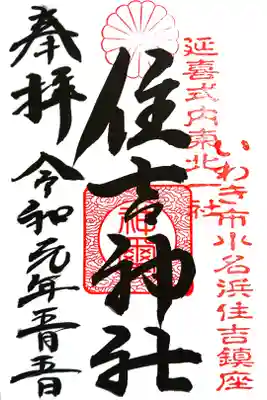 いわき市小名浜住吉鎮座
延喜式内東北一社
住吉神社
奉拝
令和元年五月五日